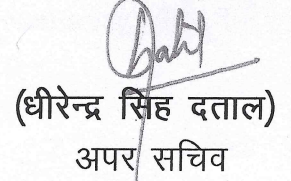 (धीरेन्द्र सिंह दताल)
अपर सचिव